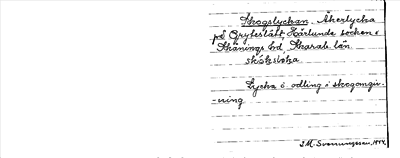 Skogslyckan. Åkerlycka
på Gryteslätt, Härlunda socken i
Skånings hd, Skarab. län.
skókslōka
Lycka ō odling i skogomgiv-
-ning.
J.M. Svennungsson, 1944.